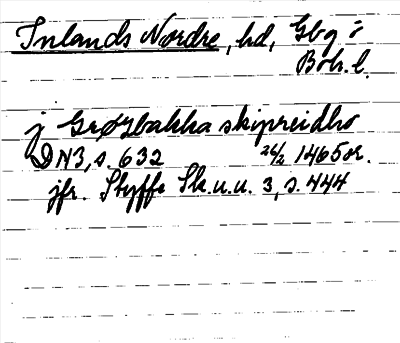 Inlands Nordre, hd, Gbg o
Boh. l.
j Grøgbakka skipreidho
DN3, s. 632 26/2 1465 or.
jfr. Styffe Sk.u.u. 3, s. 444